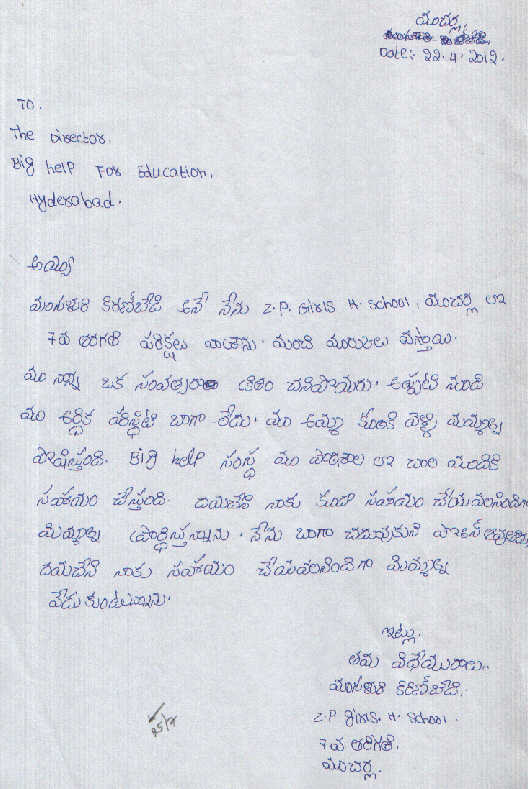 మంచర్ల,
Date: 22.4.2012.
TO.
The Director.
Big help For Education,
Hyderabad.
అయ్యా
కిరణ్‌బేడి అనే నేను Z.P. Girls H. School, మంచర్ల లో
7వ తరగతి పరీక్షలు వ్రాశాను. మంచి మార్కులు వస్తాయి.
మా నాన్న ఒక సంవత్సరం క్రితం చనిపోయారు. అప్పటి నుండి
మా ఆర్థిక పరిస్థితి బాగా లేదు. మా అమ్మ కూలికి వెళ్ళి మమ్మల్ని
పోషిస్తుంది. Big help సంస్థ మా పాఠశాల లో చాల మందికి
సహాయం చేస్తుంది. దయచేసి నాకు కూడా సహాయం చేయవలసిందిగా
మిమ్మల్ని ప్రార్థిస్తున్నాను. నేను బాగా చదువుకుని
దయచేసి నాకు సహాయం చేయవలసిందిగా మిమ్మల్ని
వేడుకుంటున్నాను.
ఇట్లు,
తమ విధేయురాలు,
కిరణ్‌బేడి,
Z.P Girls. H. School.
7వ తరగతి.
మంచర్ల.